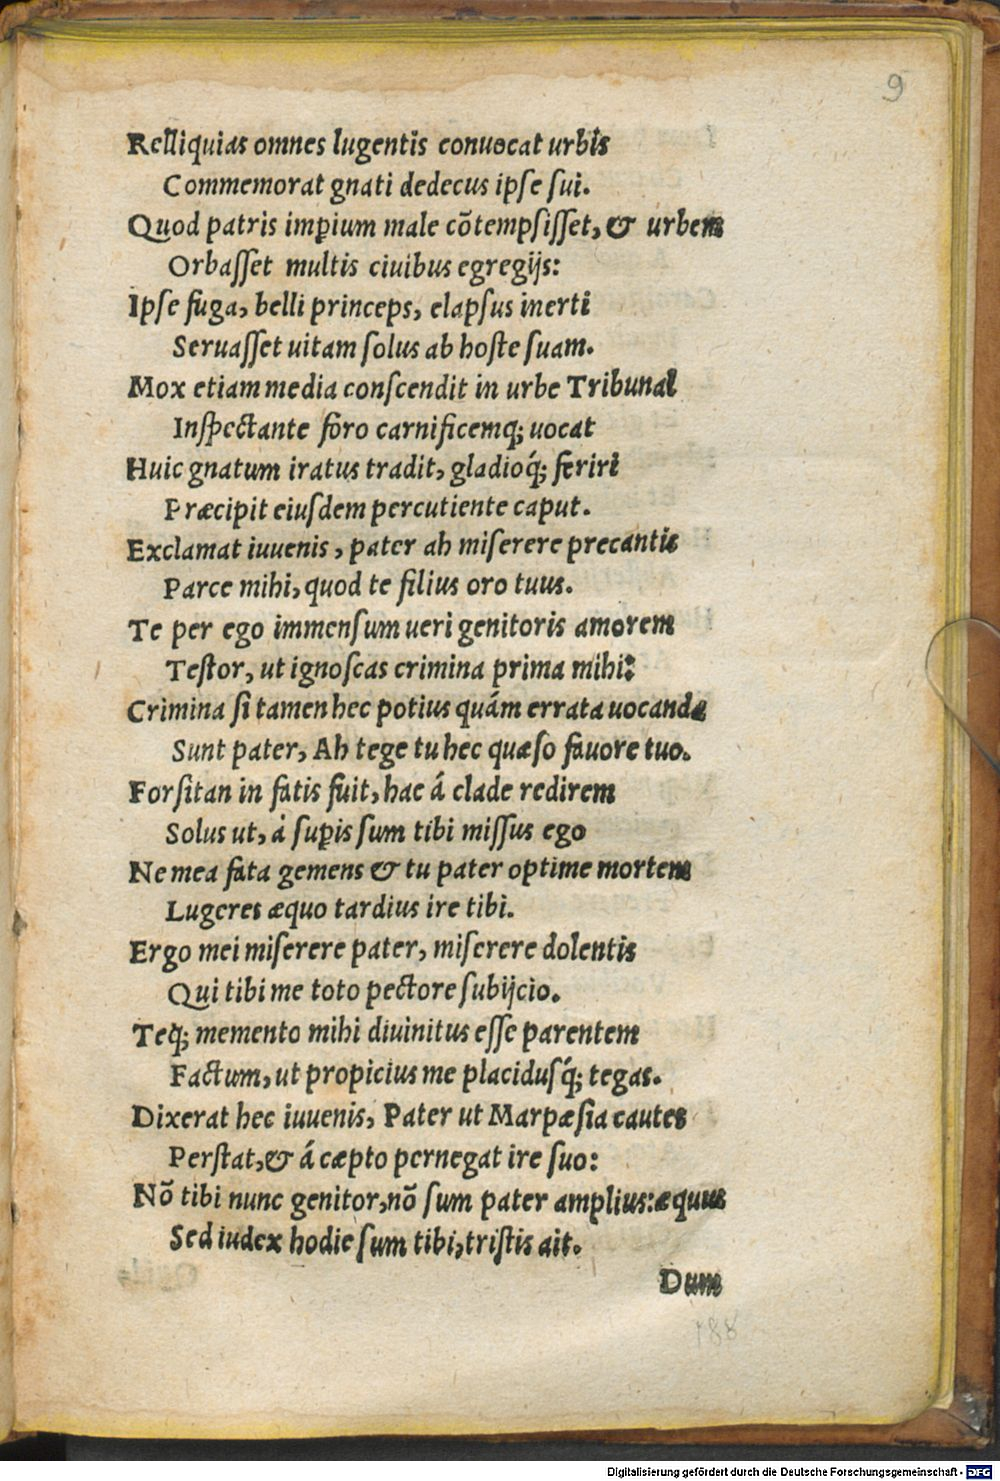 9
Relliquias omnes lugentis conuocat urbis
Commemorat gnati dedecus ipſe ſui.
Quod patris imꝑium male cõtempſiſſet, & urbem
Orbaſſet multis ciuibus egregijs:
Ipſe fuga, belli princeps, elapſus inerti
Seruaſſet uitam ſolus ab hoſte ſuam.
Mox etiam media conſcendit in urbe Tribunal
Inſpectante foro carnificemq; uocat
Huic gnatum iratus tradit, gladioq́; feriri
Præcipit eiuſdem percutiente caput.
Exclamat iuuenis, pater ah miſerere precantis
Parce mihi, quod te filius oro tuus.
Te per ego immenſum ueri genitoris amorem
Teſtor, ut ignoſcas crimina prima mihi:
Crimina ſi tamen hec potius quám errata uocandæ
Sunt pater, Ah tege tu hec quæſo fauore tuo.
Forſitan in fatis fuit, hac á clade redirem
Solus ut, á ſuꝑis ſum tibi miſſus ego
Ne mea fata gemens & tu pater optime mortem
Lugeres æquo tardius ire tibi.
Ergo mei miſerere pater, miſerere dolentis
Qui tibi me toto pectore ſubijcio.
Teq; memento mihi diuinitus eſſe parentem
Factum, ut propicius me placiduſq́; tegas.
Dixerat hec iuuenis, Pater ut Marpæſia cautes
Perſtat, & á cæpto pernegat ire ſuo:
Nõ tibi nunc genitor, nõ ſum pater amplius: æquus
Sed iudex hodie ſum tibi, triſtis ait.
Dum
Digitalisierung gefördert durch die Deutsche Forschungsgemeinschaft - DFG